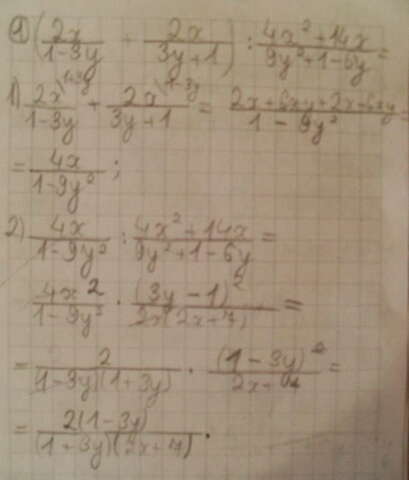 1) (2x/(1-3y) + 2x/(3y+1)) : (4x²+14x)/(9y²+1-6y) =
1) 2x\1+3y/(1-3y) + 2x\1-3y/(3y+1) = (2x+6xy+2x-6xy)/(1-9y²) =
= 4x/(1-9y²) ;
2) 4x/(1-9y²) : (4x²+14x)/(9y²+1-6y) =
4x 2/(1-9y²) · (3y-1)²/(2x(2x+7)) =
= 2/((1-3y)(1+3y)) · (1-3y)²/(2x+7) =
= 2(1-3y)/((1+3y)(2x+7)) .